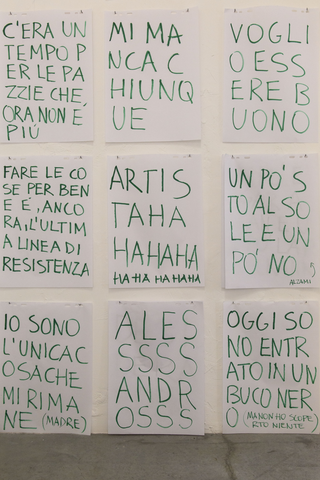 C'ERA UN
TEMPO P
ER LE PA
ZZIE CHE,
ORA NON È
PIÚ
MI MA
NCA C
HIUNQ
UE
VOGLI
O ESS
ERE B
UONO
FARE LE CO
SE PER BEN
E É, ANCO
RA, L'ULTIM
A LINEA DI
RESISTENZA
ARTIS
TAHA
HAHAHA
HAHA HAHAHA
UN PO' S
TO AL SO
LE E UN
PO' NO
IO SONO
L'UNICA C
OSA CHE
MI RIMA
NE (MADRE)
ALES
SSSS
ANDR
OSSS
OGGI SO
NO ENTR
ATO IN UN
BUCO NER
O (MA NON HO SCOPE
RTO NIENTE)